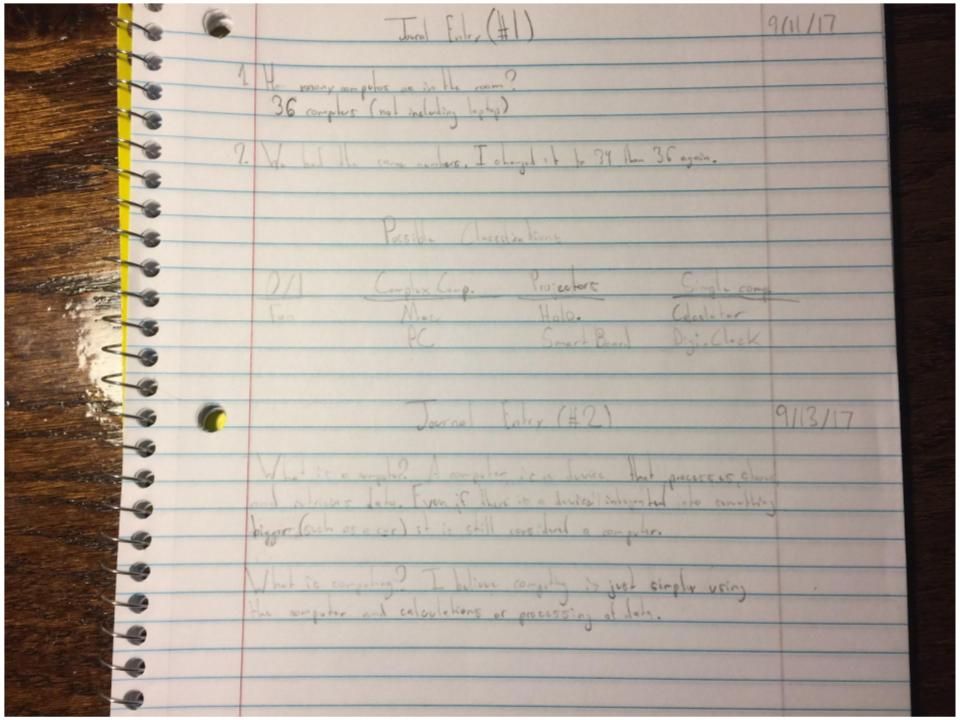 Journal Entry (#1) 9/11/17
1. How many computers are in the room?
36 computers (not including laptops)
2. We had the same numbers, I changed it to 34 then 36 again.
Possible
0/1 Complex Comp. Projectors Simple comp
Fan Mac Holo. Calculator
PC Smart Board Digi. Clock
Journal Entry (#2) 9/13/17
What is a computer? A computer is a device that processes, stores
and retrieves data. Even if there is a device integrated into something
bigger (such as a car) it is still considered a computer.
What is computing? I believe computing is just simply using
the computer and calculations or processing of data.